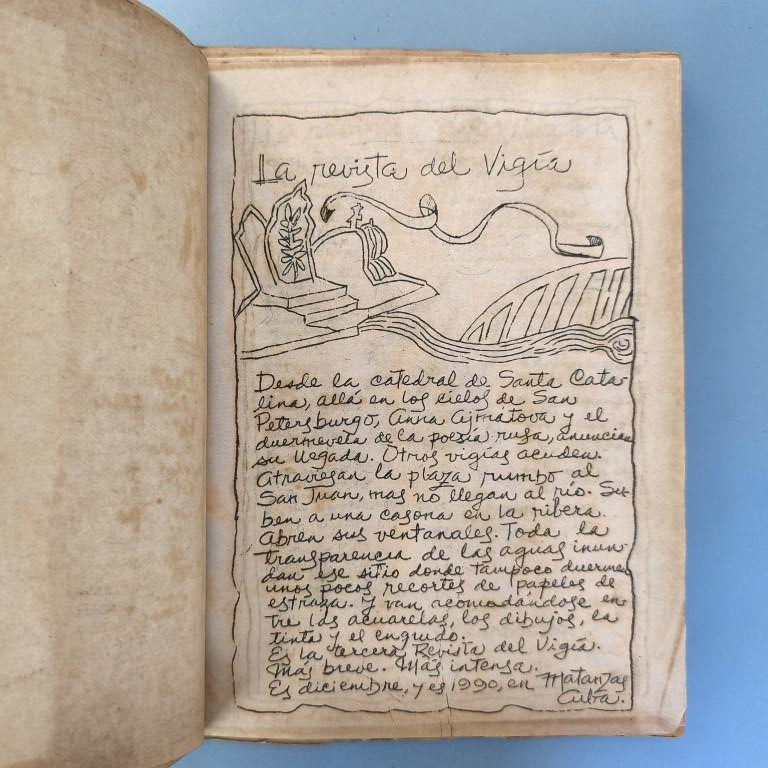 La revista del Vigía
Desde la catedral de Santa Cata-
lina, allá en los cielos de San
Petersburgo, Anna Ajmátova y el
duermevela de la poesía rusa, anuncian
su llegada. Otros vigías acuden.
Atraviesan la plaza rumbo al
San Juan, mas no llegan al río. Su-
ben a una casona en la ribera.
Abren sus ventanales. Toda la
transparencia de las aguas inun-
dan ese sitio donde tampoco duermen
unos pocos recortes de papeles de
estraza. Y van acomodándose en-
tre las acuarelas, los dibujos, la
tinta y el engrudo.
Es la tercera Revista del Vigía.
Más breve. Más intensa.
Es diciembre, y es 1990, en Matanzas
Cuba.